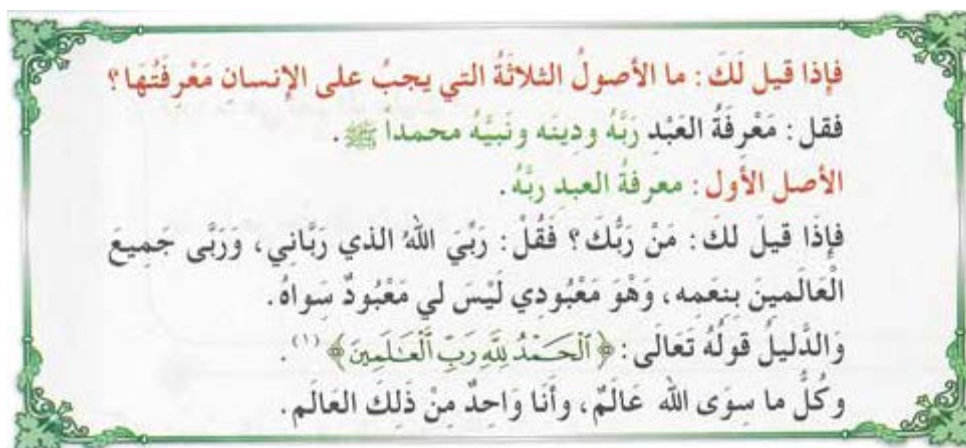 فإِذا قيل لَكَ: ما الأصولُ الثلاثَةُ التي يجبُ على الإنسان مَعْرِفَتُهَا؟
فقل: مَعْرِفَةُ العَبْدِ رَبَّهُ ودِينَه ونَبيَّهُ محمداً ﷺ.
الأصل الأول: معرفةُ العبدِ ربَّهُ.
فإِذَا قيلَ لكَ: مَنْ رَبُّكَ؟ فَقُلْ: رَبِّيَ اللهُ الذي رَبَّانِي، وَرَبَّى جَمِيعَ
الْعَالَمينَ بِنِعَمِه، وَهْوَ مَعْبُودِي لَيْسَ لي مَعْبُودٌ سَواهُ.
وَالدَّليلُ قولُهُ تَعَالَى: ﴿ٱلْحَمْدُ لِلَّهِ رَبِّ ٱلْعَٰلَمِينَ﴾ (١).
وكُلُّ ما سِوَى الله عَالَمٌ، وأَنَا وَاحِدٌ مِنْ ذَلِكَ العَالَمِ.